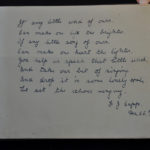 If any little word of ours
Can make one life the brighter
If any little song of ours
Can make one heart the lighter
God help us speak that little word
And take our bit of singing
And drop it in some lonely vale
To set the echoes ringing.